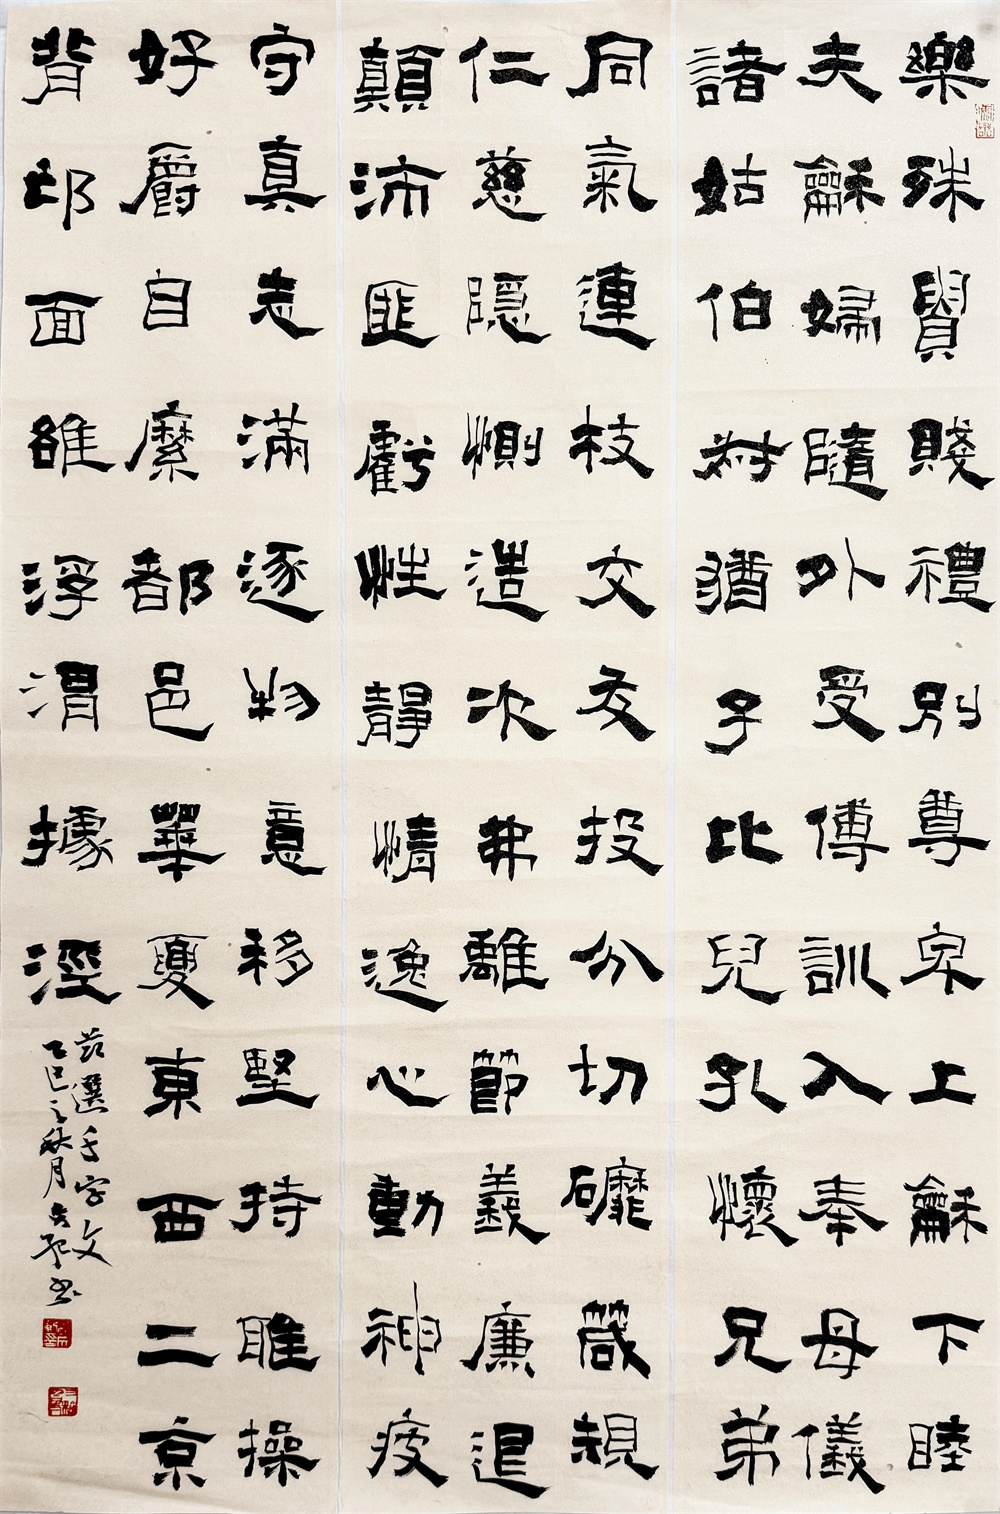 樂殊貴賤禮別尊卑上龢下睦
夫龢婦隨外受傅訓入奉母儀
諸姑伯叔猶子比兒孔懷兄弟
同氣連枝交友投分切䃺箴規
仁慈隱惻造次弗離節義廉退
顛沛匪虧性靜情逸心動神疲
守真志滿逐物意移堅持雅操
好爵自縻都邑華夏東西二京
背邙面雒浮渭據涇
茲選千字文
乙巳之秋月書